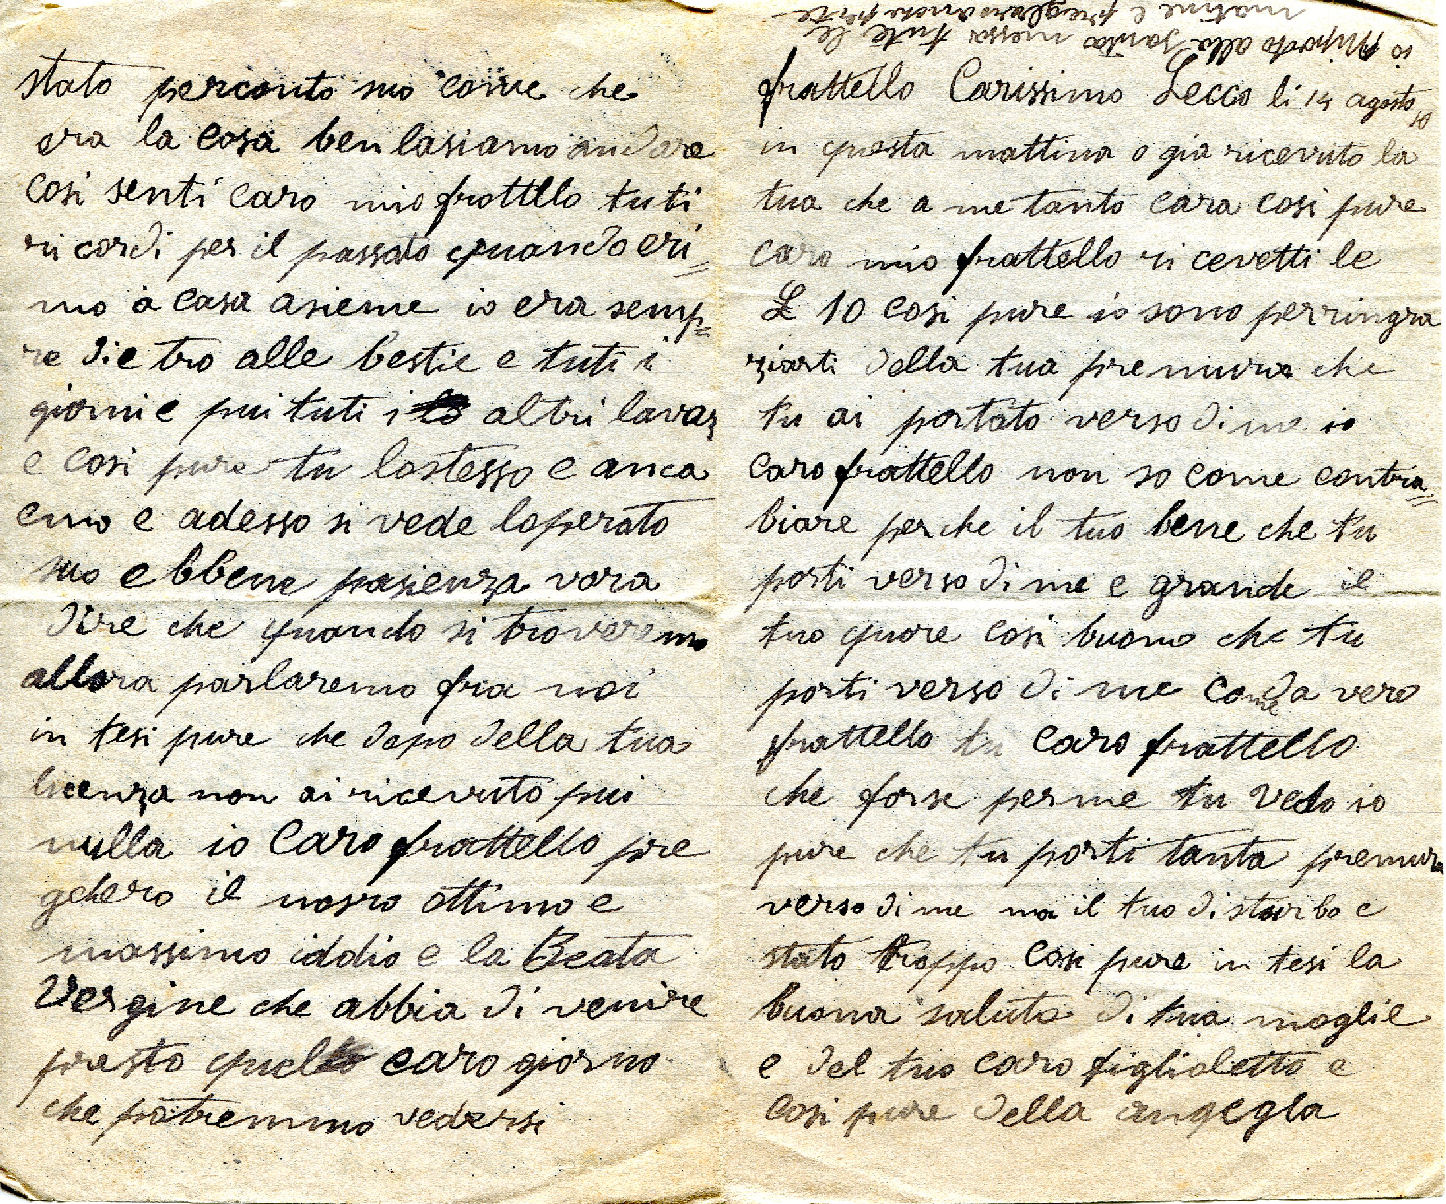 frattello Carissimo Lecco li 14 agosto
in questa mattina o gia ricevuto la
tua che a me tanto cara cosi pure
caro mio frattello ricevetti le
£ 10 cosi pure io sono perringra
ziarti della tua premura che
tu ai portato verso di me io
caro frattello non so come contra=
biare perche il tuo bene che tu
porti verso di me e grande il
tuo quore cosi buono che tu
porti verso di me come da vero
frattello tu caro frattello
che forse per me tu vedo io
pure che tu porti tanta premura
verso di me ma il tuo disturbo e
stato troppo cosi pure in tesi la
buona saluta di tua moglie
e del tuo caro figlioletto e
cosi pure della
stato perconto suo come che
era la cosa ben lasiamo andare
cosi senti caro mio frottello tuti
ricordi per il passato quando eri=
mo a casa asieme io era semp=
re dietro alle bestie e tuti i
giorni e pui tuti i altri lavar
e cosi pure tu lostesso e anca
emo e adesso si vede loperato
suo ebbene pasienza vora
dire che quando si troveremo
allora parlaremo fra noi
in tesi pure che dopo della tua
licenza non ai ricevuto pui
nulla io Caro frattello pre
gehero il nosro ottimo e
massimo iddio e la Beata
Vergine che abbia di venire
presto quel caro giorno
che potremmo vedersi
io alla santa messa tute le
matine e